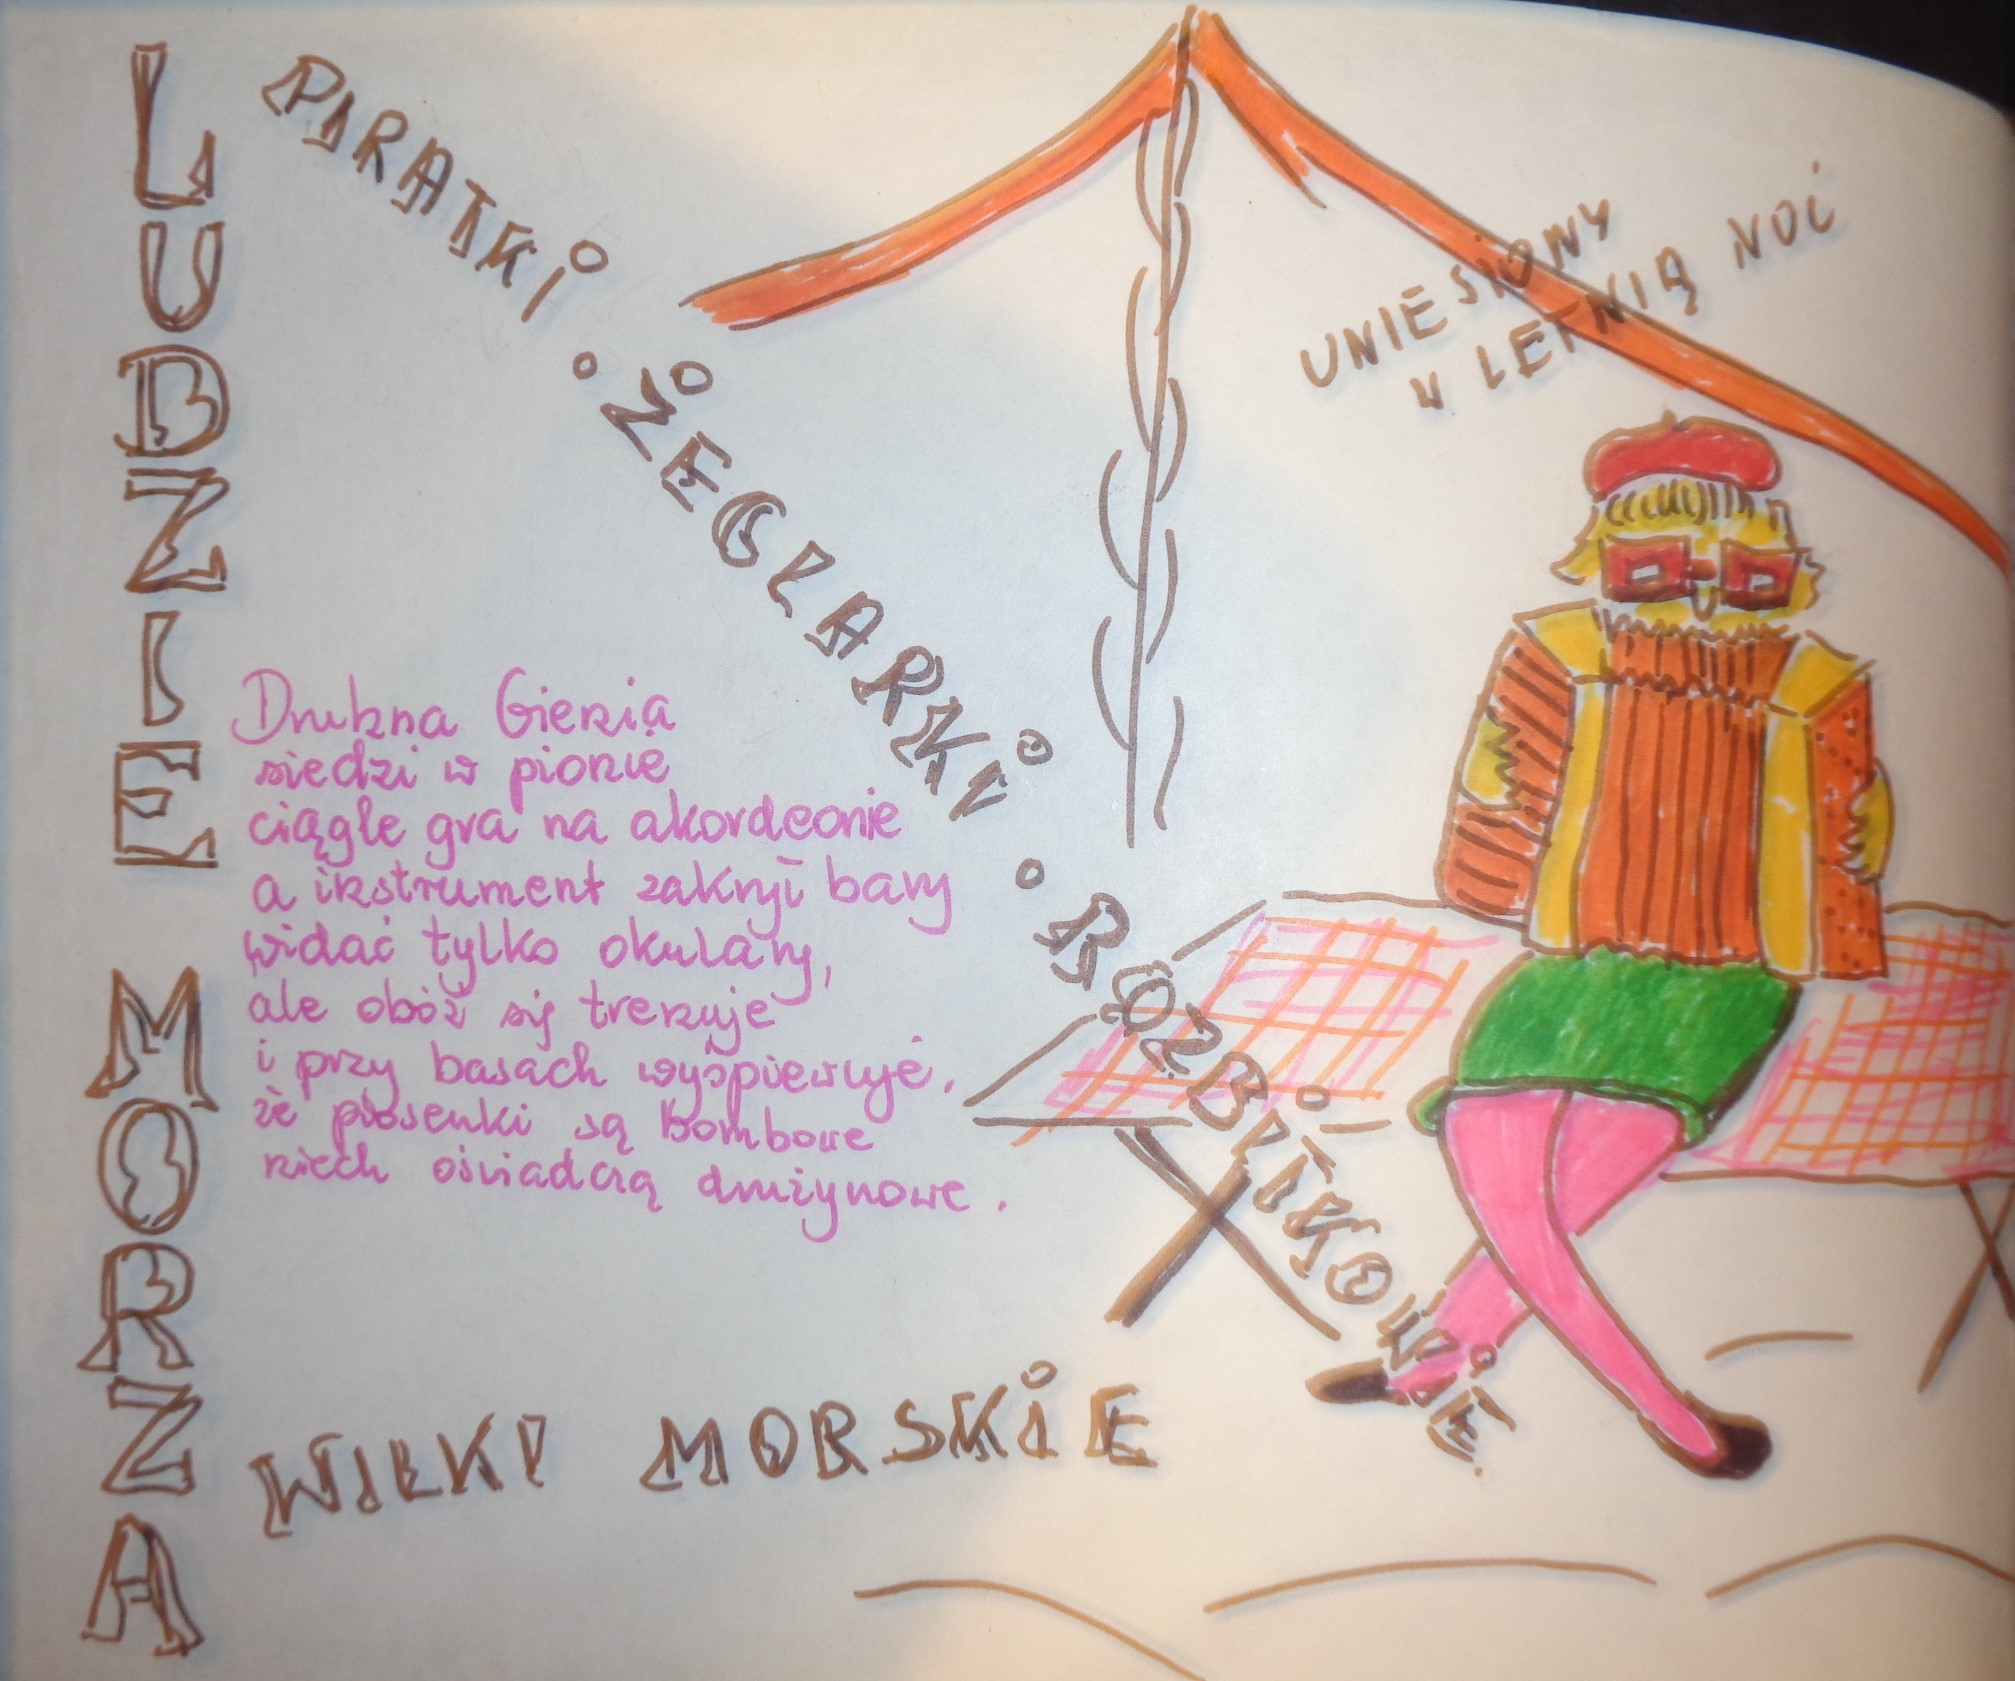 LUDZIE MORZA
PIRATKI • ŻEGLARKI • ROZBITKOWIE
UNIESIONY
W LETNIĄ NOC
Druhna Gienia
siedzi w pionie
ciągle gra na akordeonie
a instrument zakrył bary
widać tylko okulary,
ale obóz się trenuje
i przy basach wyśpiewuje,
że piosenki są bombowe
niech oświadczą drużynowe.
WILKI MORSKIE